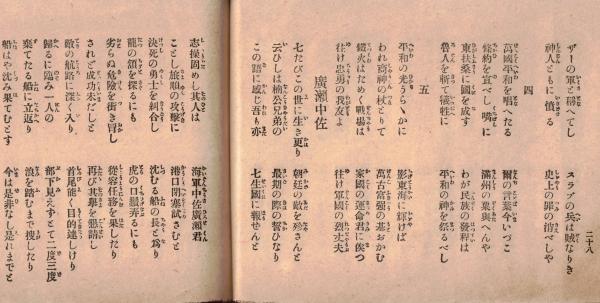 二十八
ザーの軍と
スラブの兵は賊なりき
神人ともに憤る
史上の
四
萬國平和を唱へたる
爾の言葉今いづこ
條約を宣べし嘴に
滿州の粟與へんや
東扶桑に國を成す
わが民族の發程は
魯人を斬て犧牲に
平和の神を祭るべし
五
平和の光うらゝかに
影東海に輝けば
われ商神の杖とりて
萬古富強の基おかむ
鐵火はためく戰場は
家國の運命君に俟つ
往け忠勇の我友よ
往け軍國の烈丈夫
廣瀬中佐
七たびこの世に生き更り
朝廷の敵を殄さんと
云ひしは楠公兄弟の
最期の際の誓ひなり
この語に感じ吾も亦
七生國に報せんと
志操固めし其人は
海軍中佐廣瀬君
ことし旅順の攻擊に
港口閉塞試さむと
決死の勇士を糾合し
沈むる船の長と爲り
龍の頷を探るにも
虎の口弄るにも
劣らぬ危險を衝き冒し
從容任務を果したり
されど成功未だしと
再び其擧を懇請し
敵の航路に深く入り、
首尾能く目的達しけり
歸るに臨み一人の
部下見えずとて二度三度
棄てたる船に立返り
浪を踏むまで捜したり
船はや沈み果てむとす
今は是非なし是れまでと